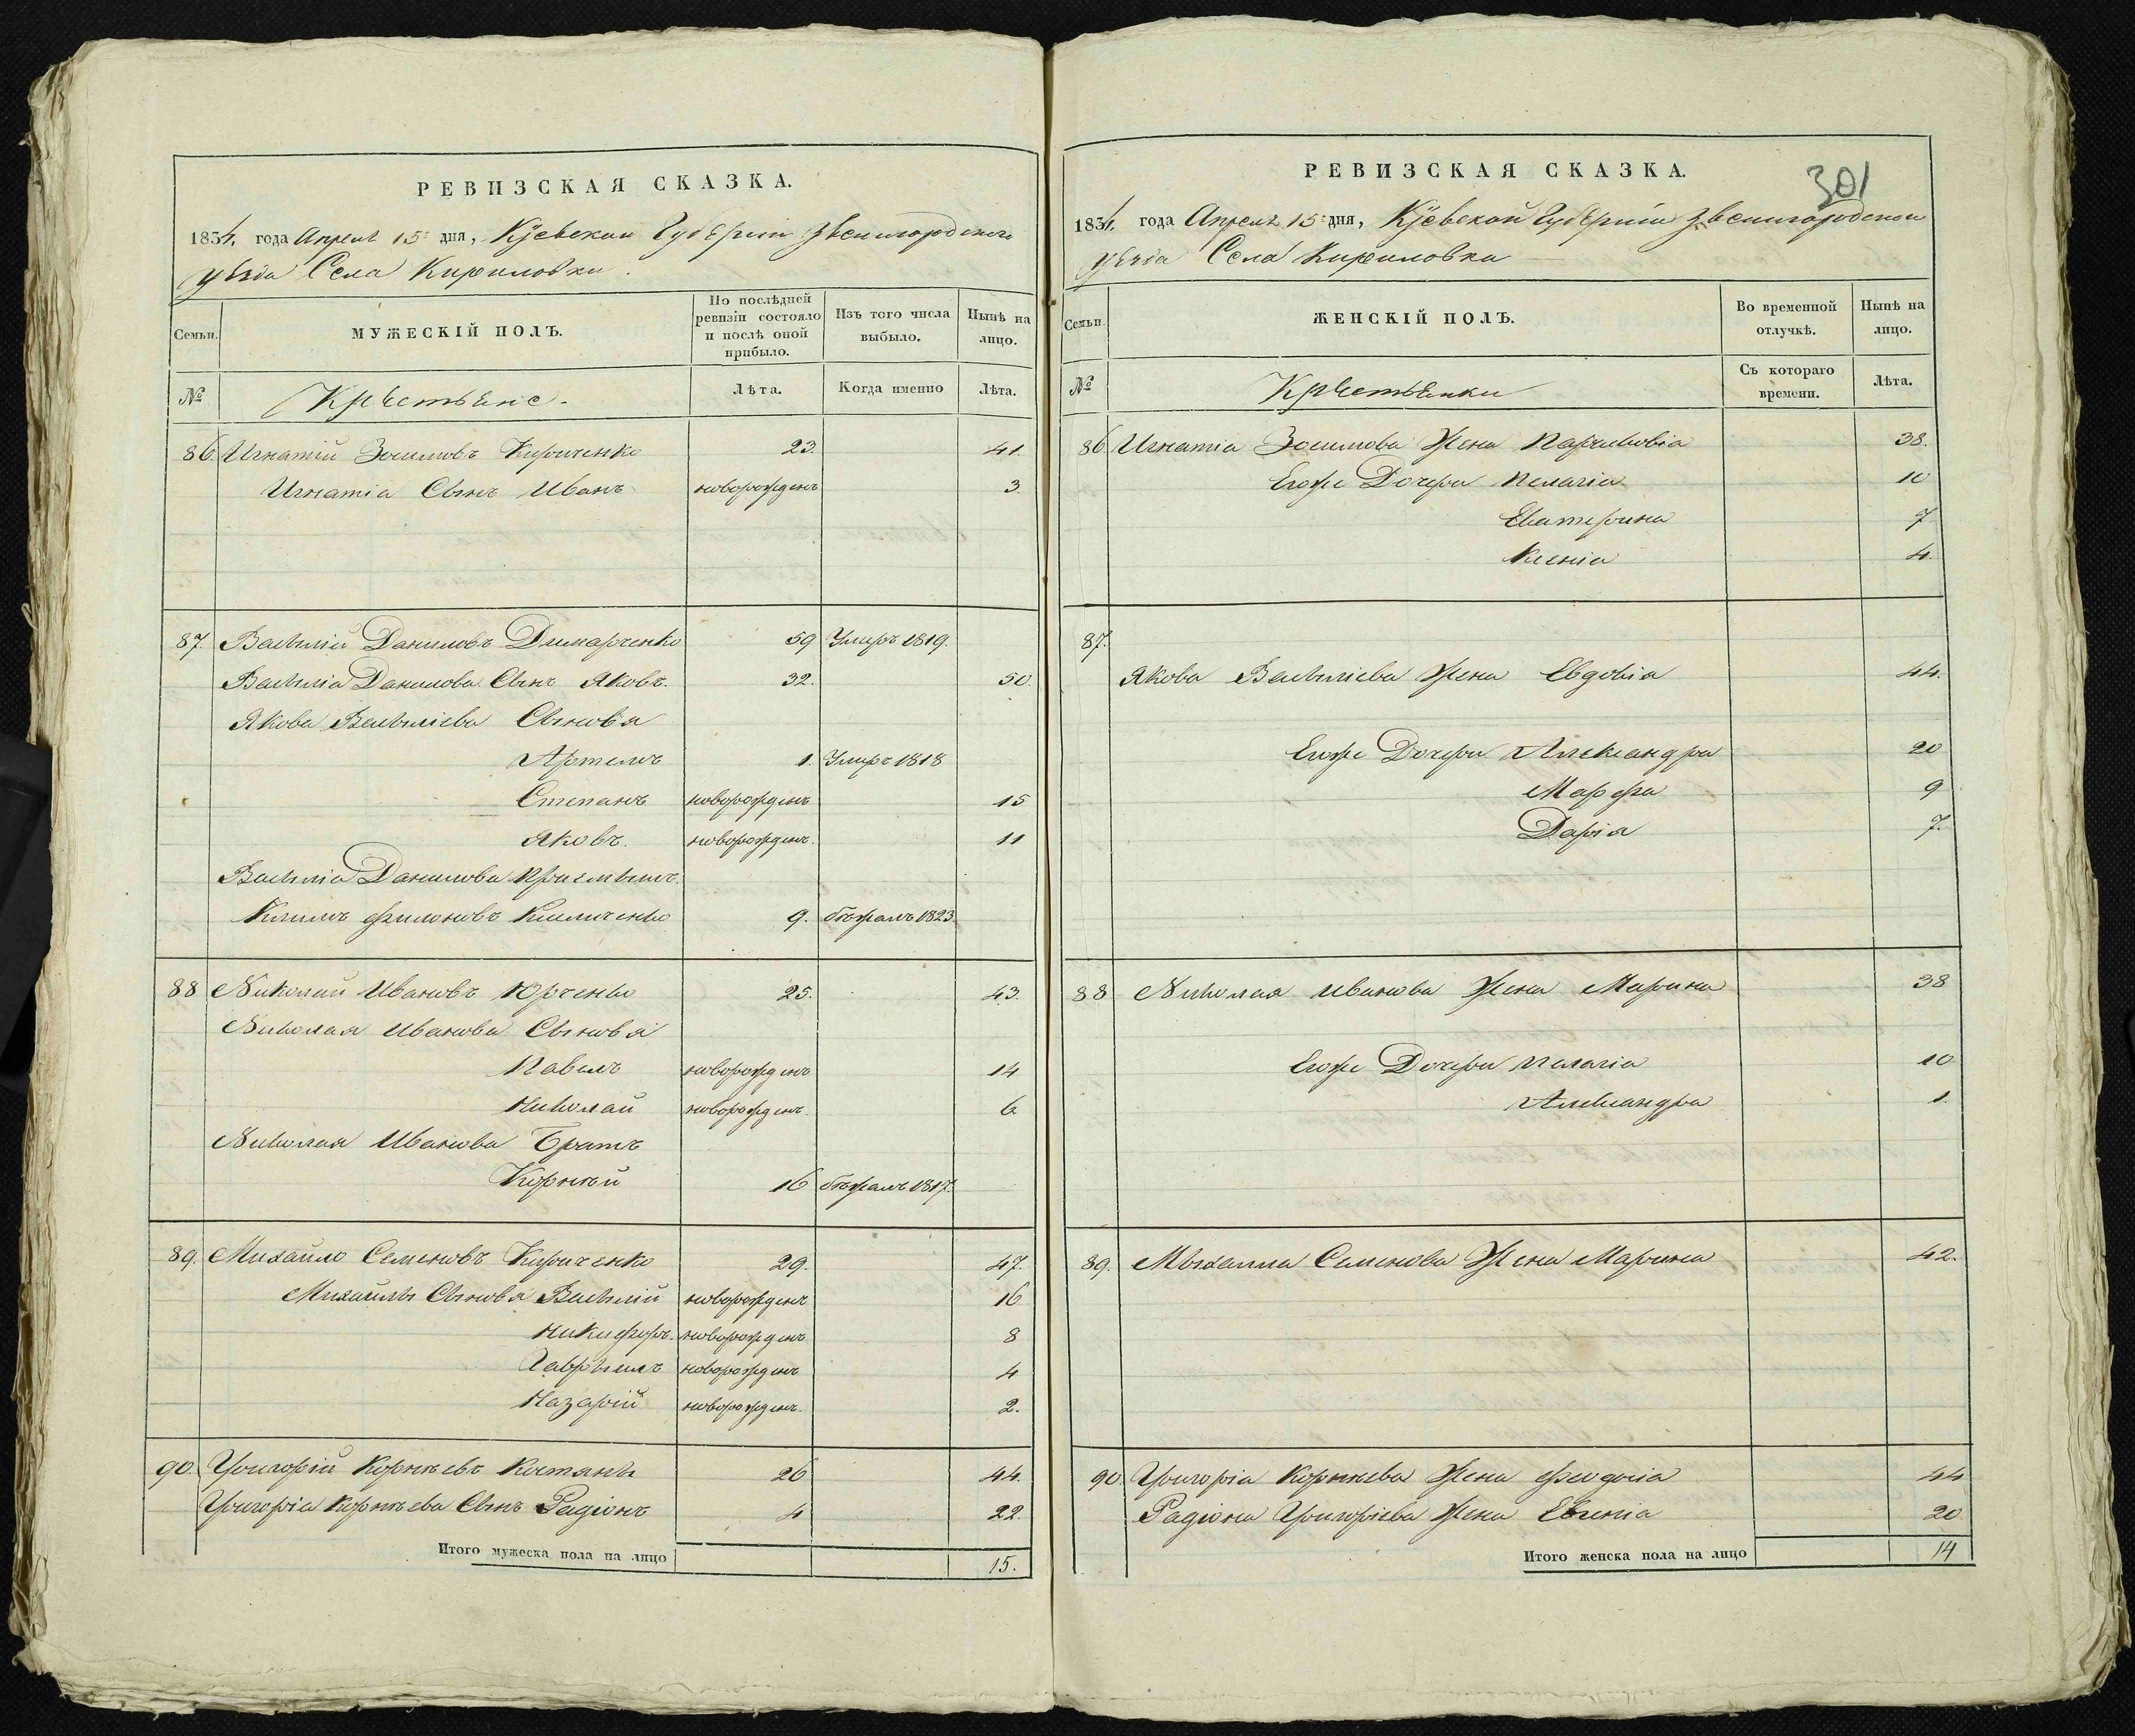 РЕВИЗСКАЯ СКАЗКА.
1834, года Апреля 15: дня, Кіевской Губерніи Звенигородского
уѣзда Села Кириловки.
Семьи.
МУЖЕСКІЙ ПОЛЪ.
По послѣдней ревизіи состояло и послѣ оной прибыло.
Изъ того числа выбыло.
Нынѣ на лицо.
№
Крестьяне.
Лѣта.
Когда именно
Лѣта.
86. Игнатій Зосимовъ Кириченко 23. 41.
Игнатіа Сынъ Иванъ новорожденъ 3.
87. Василій Даниловъ Димарченко 59 Умиръ 1819.
Василіа Данилова Сынъ Яковъ. 32. 50.
Якова Василіева Сыновя
Артемъ 1. Умиръ 1818
Степанъ новорожденъ 15
Яковъ. новорожденъ. 11
Василіа Данилова приемышъ.
Климъ Филоновъ 9. бежалъ 1823.
88 Николай Ивановъ Юрченко 25. 43.
Николая Иванова Сыновя
Павелъ новорожденъ 14
Николай новорожденъ. 6
Николая Иванова Братъ
Корней 16 бежалъ 1817.
89. Михайло Семеновъ Кириченко 29. 47.
Михайлы Сыновя Василій новорожденъ 16
Никифоръ. новорожденъ 8
Гаврыилъ новорожденъ 4
Назарій новорожденъ. 2.
90. Григорій Корнѣевъ 26 44.
Григоріа Корнѣева Сынъ Радіонъ 4 22.
Итого мужеска пола на лицо 15.
РЕВИЗСКАЯ СКАЗКА.
301
1834, года Апреля 15: дня, Кіевской Губерніи Звенигородской
уѣзда Села Кириловки
Семьи.
ЖЕНСКІЙ ПОЛЪ.
Во временной отлучкѣ.
Нынѣ на лицо.
№
Крестьянки
Съ котораго времени.
Лѣта.
86. Игнатіа Зосимова Жена 38.
Егоже Дочери Пелагіа 10
Екатерина 7
Ксеніа 4.
87.
Якова Василіева Жена Евдокіа 44.
Егоже Дочери Александра 20
Марфа 9
Даріа 7.
88 Николая Иванова Жена Марина 38
Егоже Дочери Пелагіа 10
Александра 1.
89. Михаила Семенова Жена Марина 42.
90 Григоріа Корнѣева Жена Феодосіа 44
Радіона Григоріева Жена Евгеніа 20
Итого женска пола на лицо 14